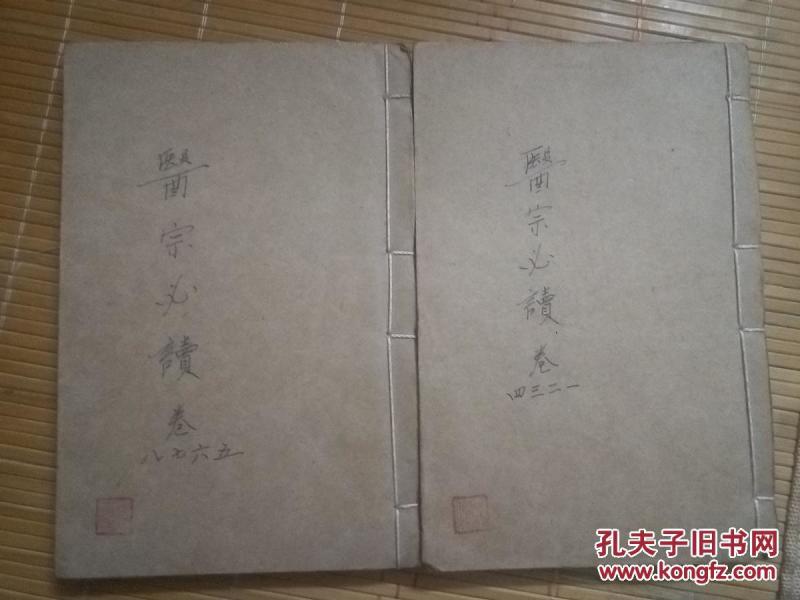 醫宗必讀
卷
一二三四
醫宗必讀
卷
五六七八
孔夫子旧书网
www.kongfz.com